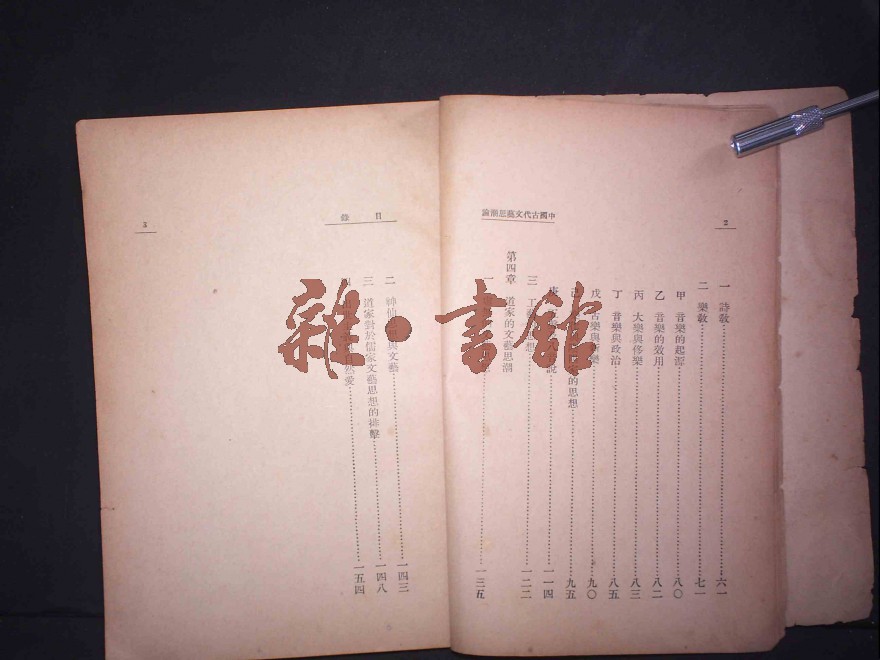 中國古代文藝思潮論
2
一 詩教 六一
二 樂教 七一
甲 音樂的起源 八〇
乙 音樂的效用 八二
丙 大樂與侈樂 八三
丁 音樂與政治 八五
戊 古樂與 樂 九〇
己 的思想 九五
庚 說 一一四
三 工 思想 一二二
第四章 道家的文藝思潮
一 一三五
目錄
3
二 神仙 與文藝 一四三
三 道家對於儒家文藝思想的排擊 一四八
四 愛 一五四
雜·書館